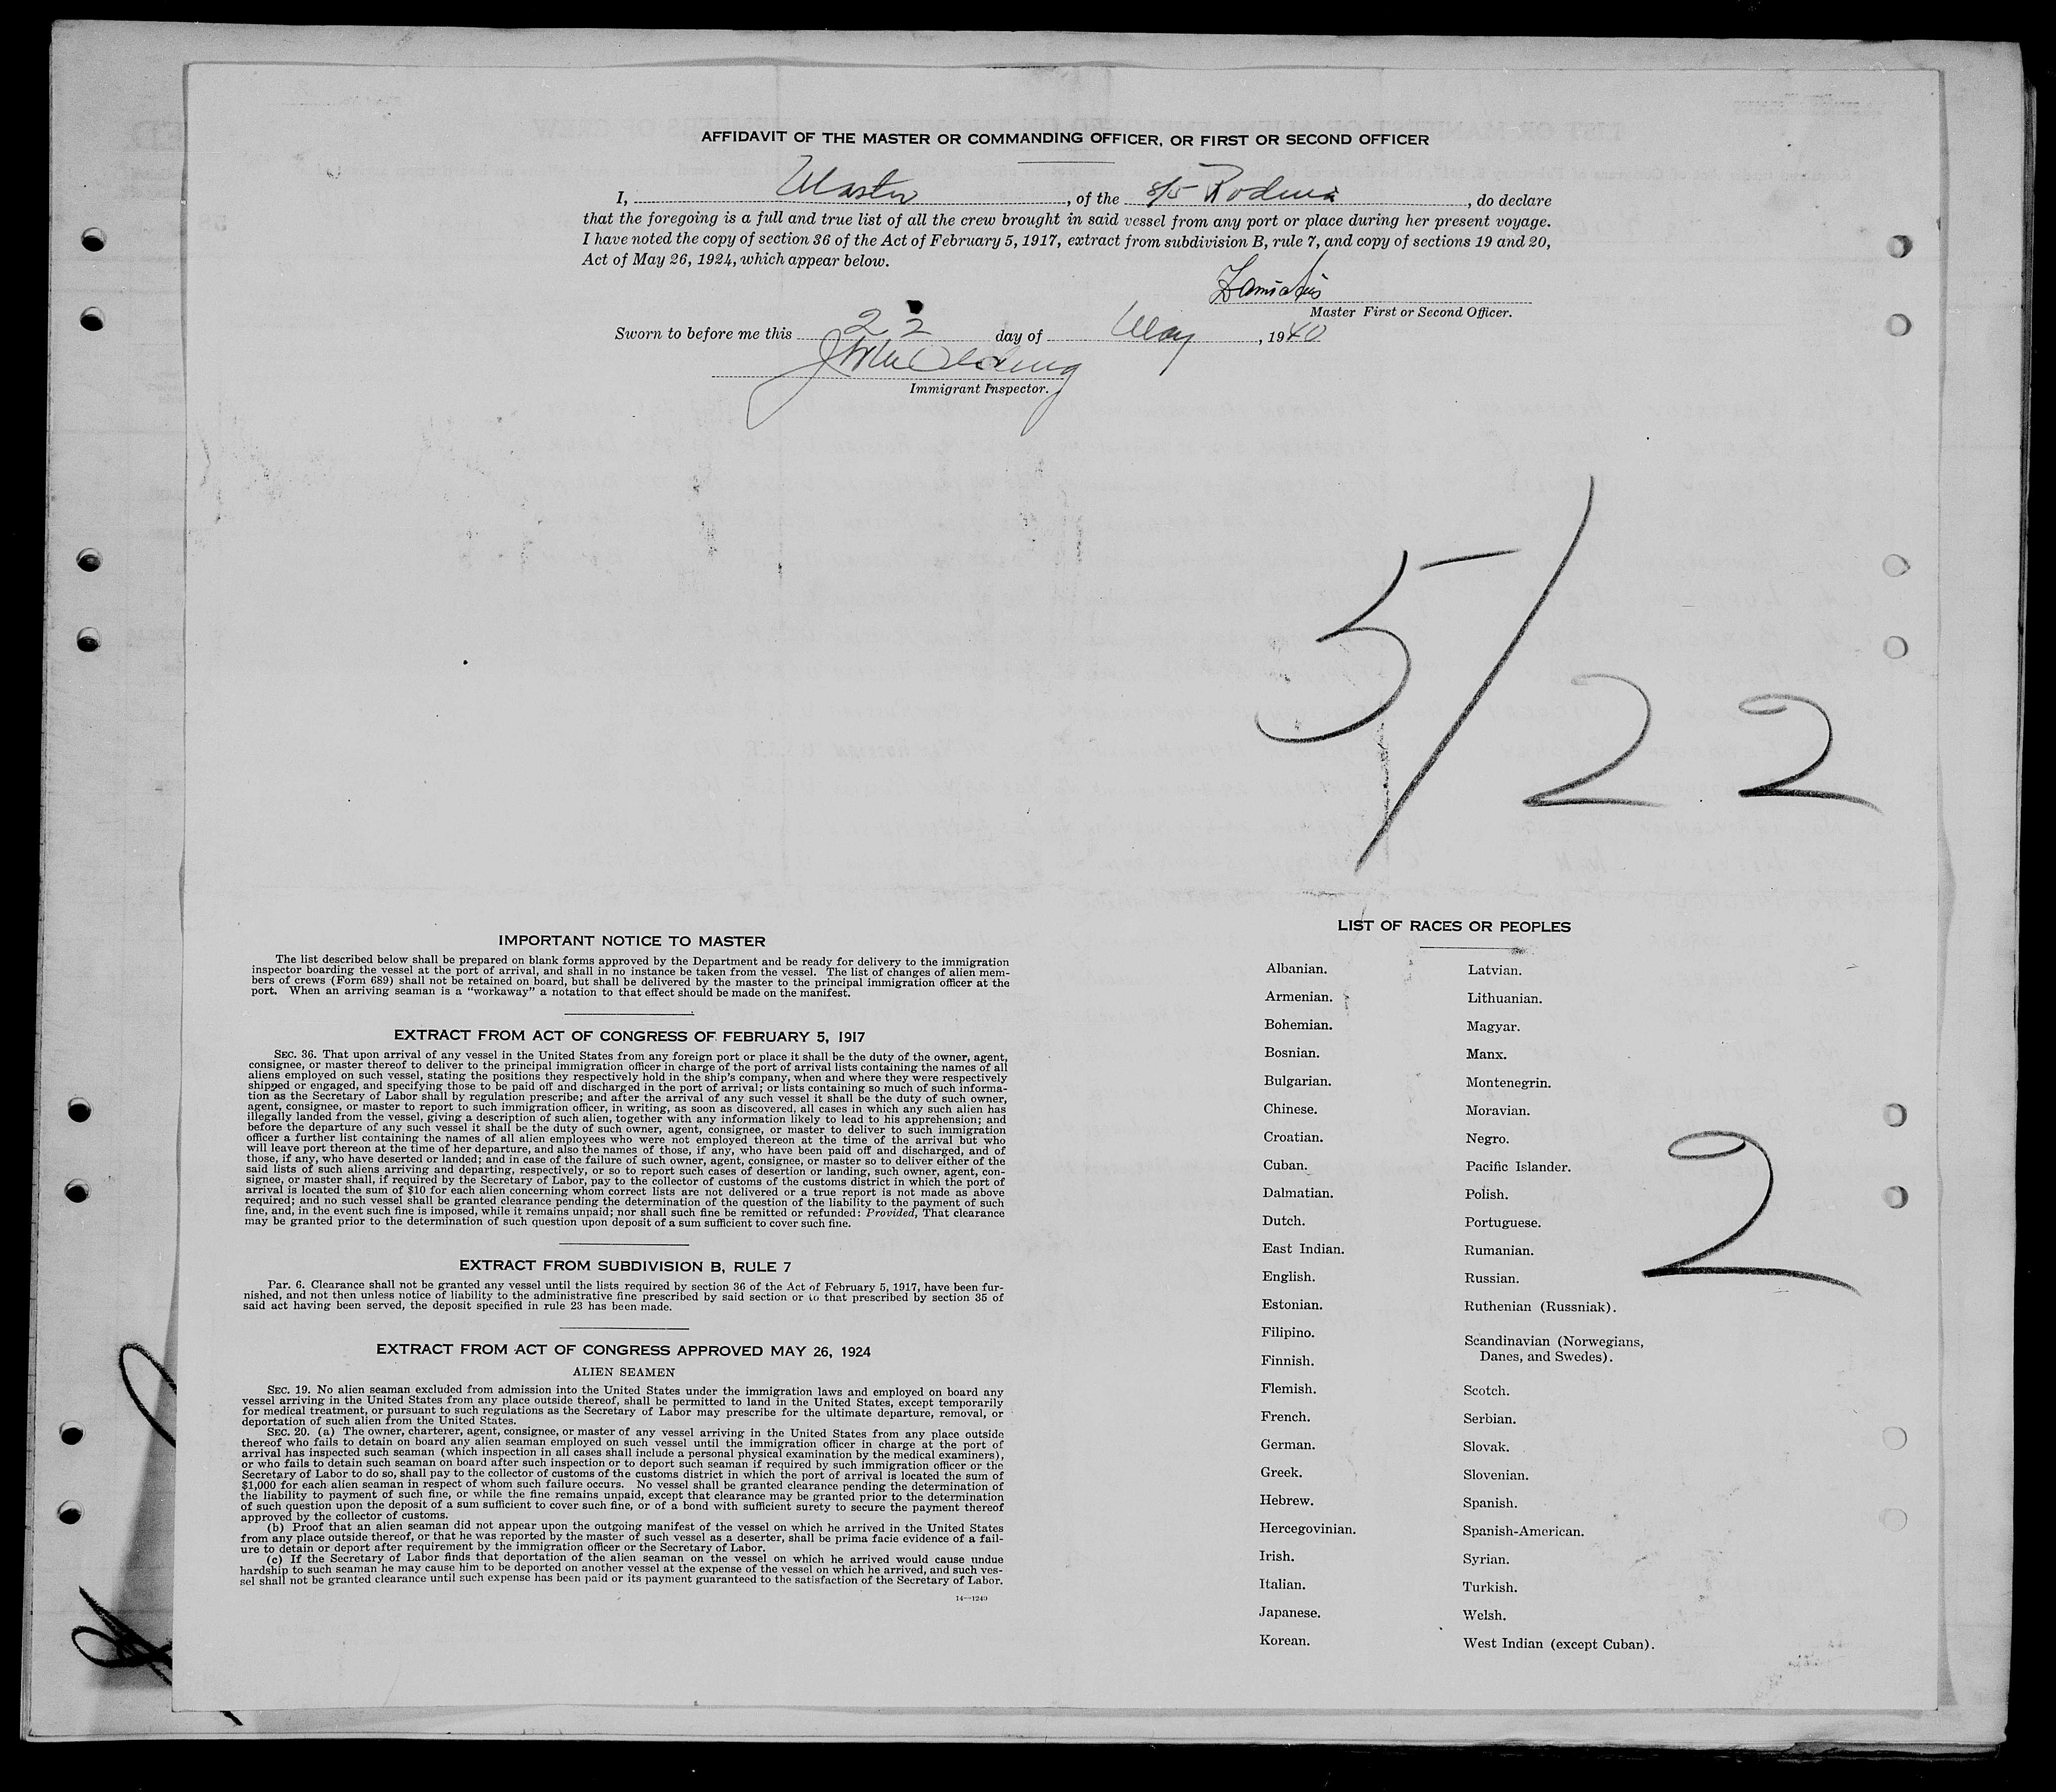 AFFIDAVIT OF THE MASTER OR COMMANDING OFFICER, OR FIRST OR SECOND OFFICER
I, Master, of the S/S Rodina, do declare
that the foregoing is a full and true list of all the crew brought in said vessel from any port or place during her present voyage.
I have noted the copy of section 36 of the Act of February 5, 1917, extract from subdivision B, rule 7, and copy of sections 19 and 20,
Act of May 26, 1924, which appear below.
Master First or Second Officer.
Sworn to before me this 22 day of May, 1940
Immigrant Inspector.
5/22
IMPORTANT NOTICE TO MASTER
The list described below shall be prepared on blank forms approved by the Department and be ready for delivery to the immigration
inspector boarding the vessel at the port of arrival, and shall in no instance be taken from the vessel. The list of changes of alien mem-
bers of crews (Form 689) shall not be retained on board, but shall be delivered by the master to the principal immigration officer at the
port. When an arriving seaman is a "workaway" a notation to that effect should be made on the manifest.
EXTRACT FROM ACT OF CONGRESS OF FEBRUARY 5, 1917
SEC. 36. That upon arrival of any vessel in the United States from any foreign port or place it shall be the duty of the owner, agent,
consignee, or master thereof to deliver to the principal immigration officer in charge of the port of arrival lists containing the names of all
aliens employed on such vessel, stating the positions they respectively hold in the ship's company, when and where they were respectively
shipped or engaged, and specifying those to be paid off and discharged in the port of arrival; or lists containing so much of such informa-
tion as the Secretary of Labor shall by regulation prescribe; and after the arrival of any such vessel it shall be the duty of such owner,
agent, consignee, or master to report to such immigration officer, in writing, as soon as discovered, all cases in which any such alien has
illegally landed from the vessel, giving a description of such alien, together with any information likely to lead to his apprehension; and
before the departure of any such vessel it shall be the duty of such owner, agent, consignee, or master to deliver to such immigration
officer a further list containing the names of all alien employees who were not employed thereon at the time of the arrival but who
will leave port thereon at the time of her departure, and also the names of those, if any, who have been paid off and discharged, and of
those, if any, who have deserted or landed; and in case of the failure of such owner, agent, consignee, or master so to deliver either of the
said lists of such aliens arriving and departing, respectively, or so to report such cases of desertion or landing, such owner, agent, con-
signee, or master shall, if required by the Secretary of Labor, pay to the collector of customs of the customs district in which the port of
arrival is located the sum of $10 for each alien concerning whom correct lists are not delivered or a true report is not made as above
required; and no such vessel shall be granted clearance pending the determination of the question of the liability to the payment of such
fine, and, in the event such fine is imposed, while it remains unpaid; nor shall such fine be remitted or refunded: Provided, That clearance
may be granted prior to the determination of such question upon deposit of a sum sufficient to cover such fine.
EXTRACT FROM SUBDIVISION B, RULE 7
Par. 6. Clearance shall not be granted any vessel until the lists required by section 36 of the Act of February 5, 1917, have been fur-
nished, and not then unless notice of liability to the administrative fine prescribed by said section or to that prescribed by section 35 of
said act having been served, the deposit specified in rule 23 has been made.
EXTRACT FROM ACT OF CONGRESS APPROVED MAY 26, 1924
ALIEN SEAMEN
SEC. 19. No alien seaman excluded from admission into the United States under the immigration laws and employed on board any
vessel arriving in the United States from any place outside thereof, shall be permitted to land in the United States, except temporarily
for medical treatment, or pursuant to such regulations as the Secretary of Labor may prescribe for the ultimate departure, removal, or
deportation of such alien from the United States.
SEC. 20. (a) The owner, charterer, agent, consignee, or master of any vessel arriving in the United States from any place outside
thereof who fails to detain on board any alien seaman employed on such vessel until the immigration officer in charge at the port of
arrival has inspected such seaman (which inspection in all cases shall include a personal physical examination by the medical examiners),
or who fails to detain such seaman on board after such inspection or to deport such seaman if required by such immigration officer or the
Secretary of Labor to do so, shall pay to the collector of customs of the customs district in which the port of arrival is located the sum of
$1,000 for each alien seaman in respect of whom such failure occurs. No vessel shall be granted clearance pending the determination of
the liability to payment of such fine, or while the fine remains unpaid, except that clearance may be granted prior to the determination
of such question upon the deposit of a sum sufficient to cover such fine, or of a bond with sufficient surety to secure the payment thereof
approved by the collector of customs.
(b) Proof that an alien seaman did not appear upon the outgoing manifest of the vessel on which he arrived in the United States
from any place outside thereof, or that he was reported by the master of such vessel as a deserter, shall be prima facie evidence of a fail-
ure to detain or deport after requirement by the immigration officer or the Secretary of Labor.
(c) If the Secretary of Labor finds that deportation of the alien seaman on the vessel on which he arrived would cause undue
hardship to such seaman he may cause him to be deported on another vessel at the expense of the vessel on which he arrived, and such ves-
sel shall not be granted clearance until such expense has been paid or its payment guaranteed to the satisfaction of the Secretary of Labor.
14—1240
LIST OF RACES OR PEOPLES
Albanian.
Armenian.
Bohemian.
Bosnian.
Bulgarian.
Chinese.
Croatian.
Cuban.
Dalmatian.
Dutch.
East Indian.
English.
Estonian.
Filipino.
Finnish.
Flemish.
French.
German.
Greek.
Hebrew.
Hercegovinian.
Irish.
Italian.
Japanese.
Korean.
Latvian.
Lithuanian.
Magyar.
Manx.
Montenegrin.
Moravian.
Negro.
Pacific Islander.
Polish.
Portuguese.
Rumanian.
Russian.
Ruthenian (Russniak).
Scandinavian (Norwegians,
Danes, and Swedes).
Scotch.
Serbian.
Slovak.
Slovenian.
Spanish.
Spanish-American.
Syrian.
Turkish.
Welsh.
West Indian (except Cuban).
2